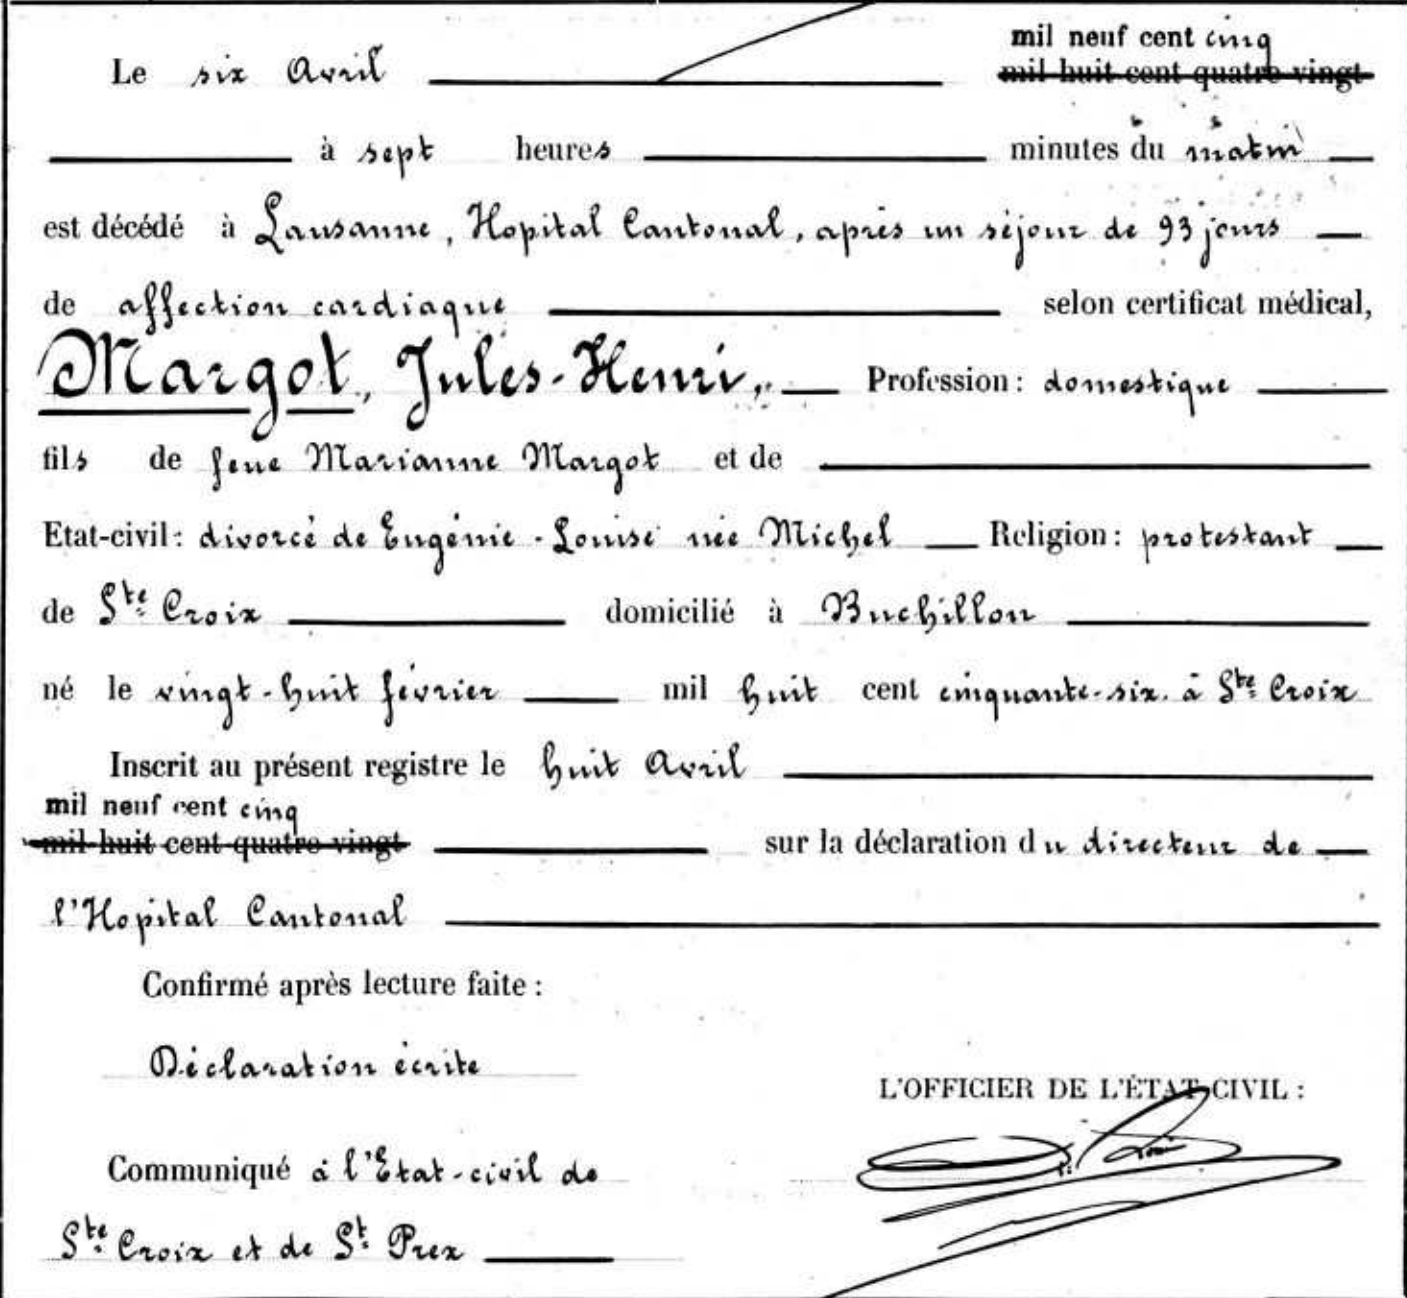 mil neuf cent cinq
Le six Avril mil huit cent quatre-vingt
à sept heures minutes du matin
est décédé à Lausanne, Hopital Cantonal, après un séjour de 93 jours
de affection cardiaque selon certificat médical,
Margot, Jules-Henri, Profession : domestique
fils de feue Marianne Margot et de
Etat-civil : divorcé de Eugénie-Louise née Michel Religion : protestant
de Ste Croix domicilié à Buchillon
né le vingt-huit février mil huit cent cinquante-six. à Ste Croix
Inscrit au présent registre le huit Avril
mil neuf cent cinq
mil huit cent quatre-vingt sur la déclaration du directeur de
l'Hopital Cantonal
Confirmé après lecture faite :
Déclaration écrite
L'OFFICIER DE L'ÉTAT-CIVIL :
Communiqué à l'Etat-civil de
Ste Croix et de St. Prex